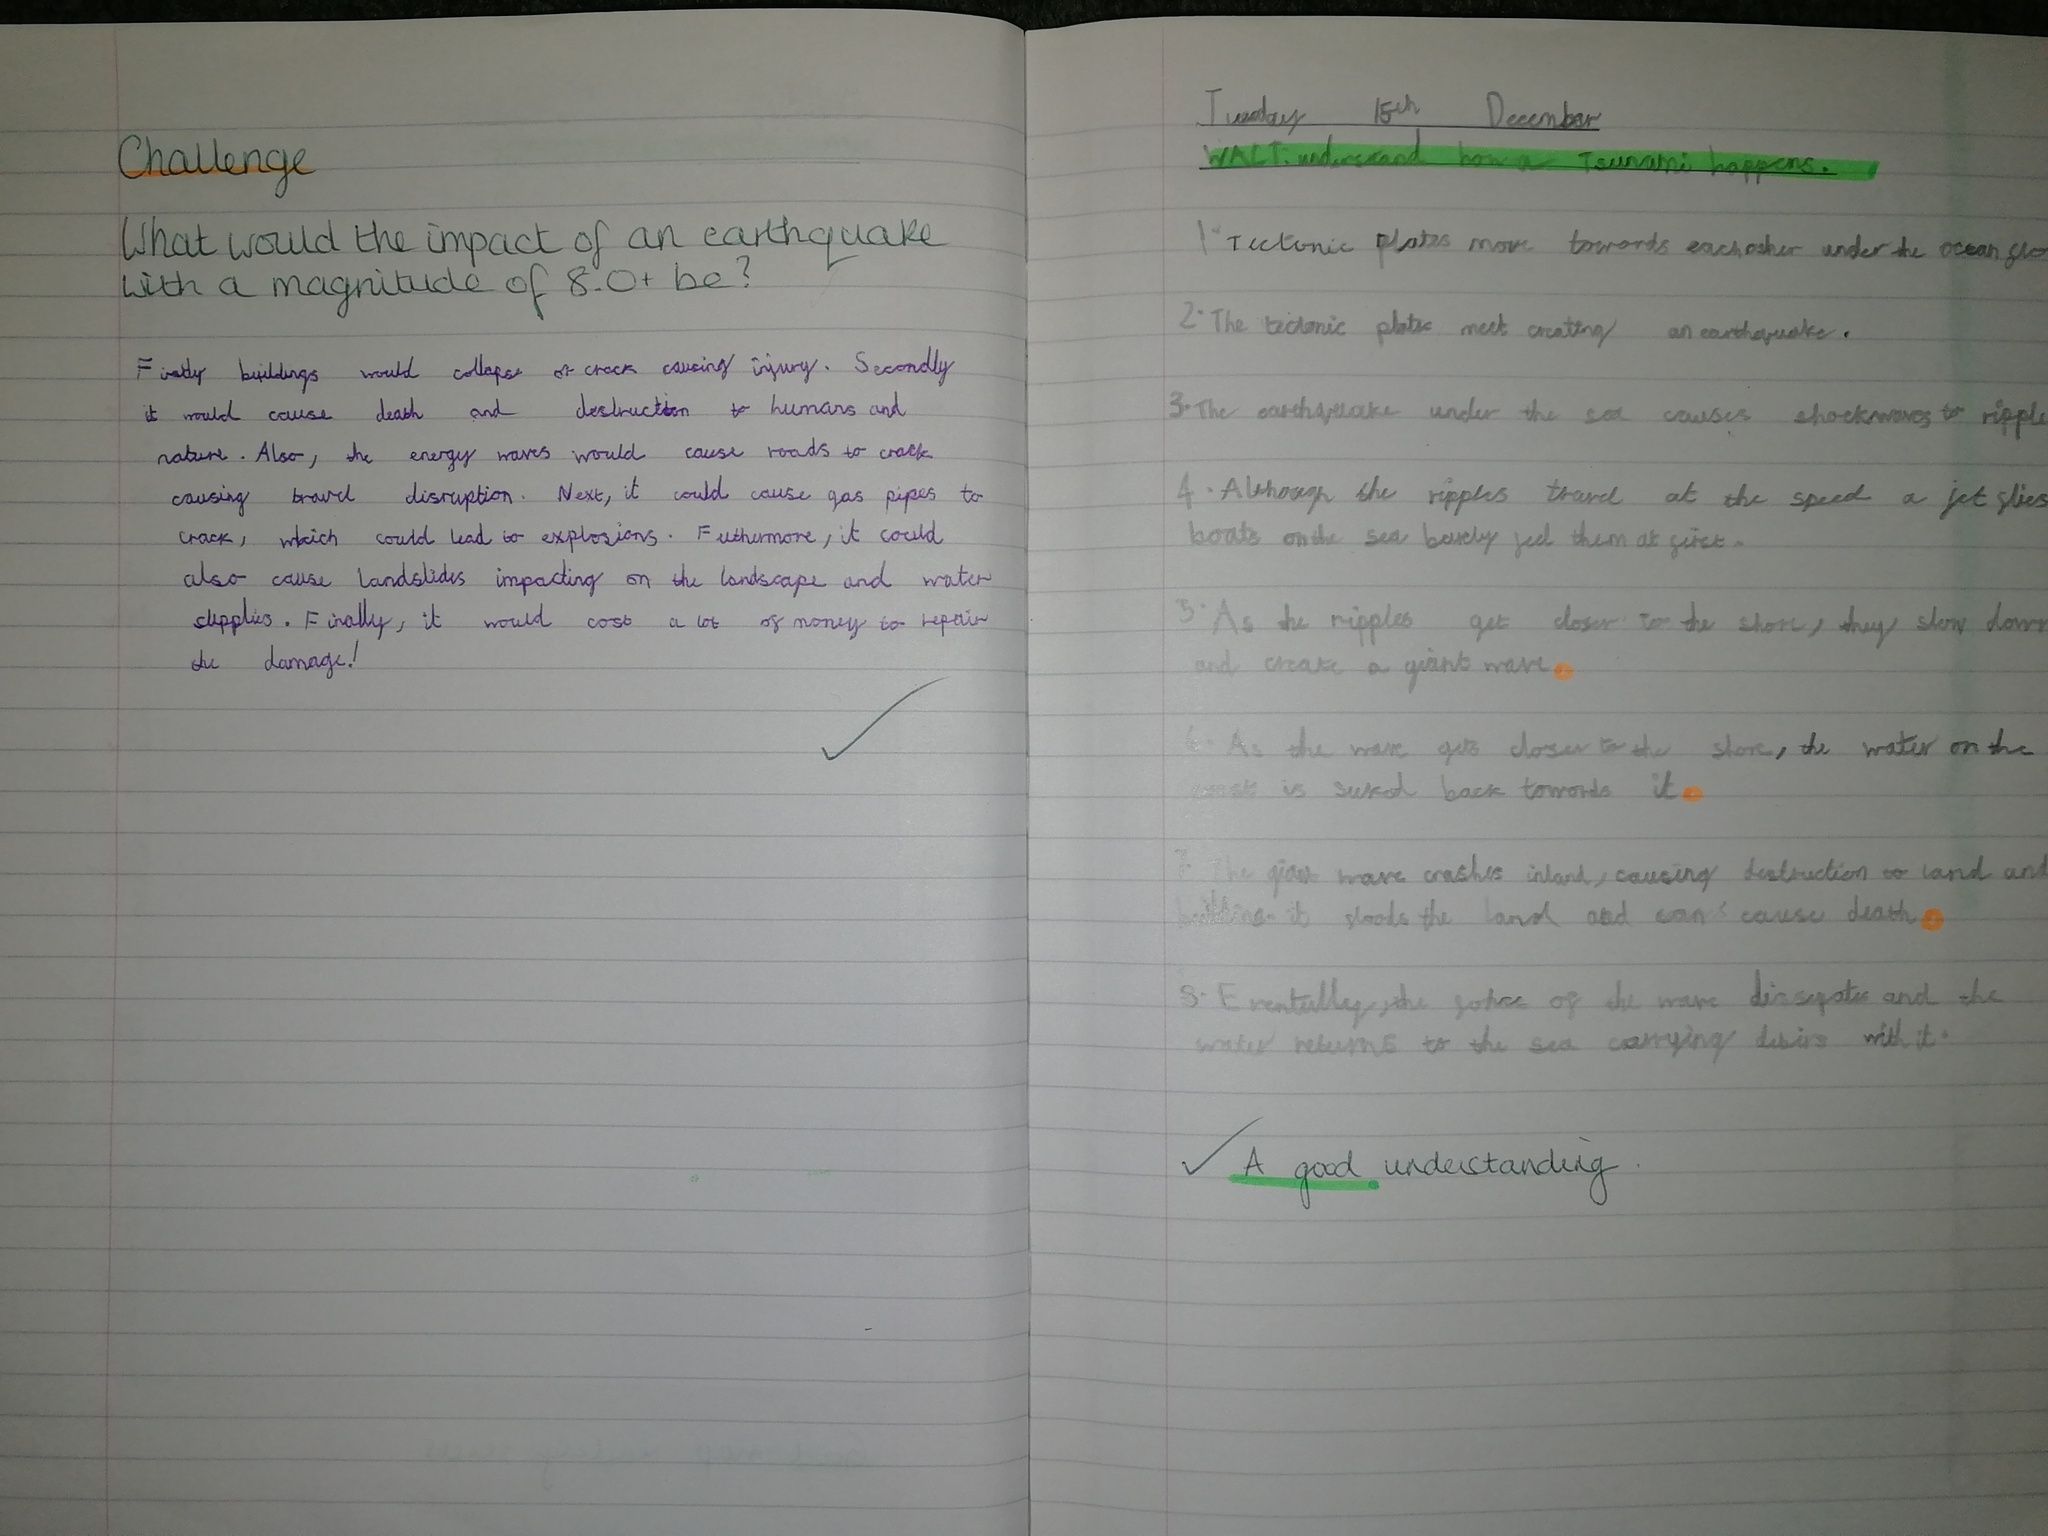 Challenge
What would the impact of an earthquake
with a magnitude of 8.0+ be?
Firstly buildings would collapse or crack causing injury. Secondly
it would cause death and destruction to humans and
nature. Also, the energy waves would cause roads to crack
causing travel disruption. Next, it could cause gas pipes to
crack, which could lead to explosions. Futhermore, it could
also cause landslides impacting on the landscape and water
supplies. Finally, it would cost a lot of money to repair
the damage!
Tuesday 15th December
WALT: understand how a Tsunami happens.
1. Tectonic plates move towards eachother under the ocean
2. The tectonic plates meet creating an earthquake.
3. The earthquake under the sea causes shockwaves to ripple
4. Although the ripples travel at the speed a jet flies
boats on the sea barely feel them at first.
5. As the ripples get closer to the shore, they slow down
and create a giant wave.
6. As the wave gets closer to the shore, the water on the
coast is suked back towards it.
7. The giant wave crashes inland, causing destruction to land and
it floods the land and can cause death.
8. Eventually, the of the wave and the
water returns to the sea carrying with it.
A good understanding.